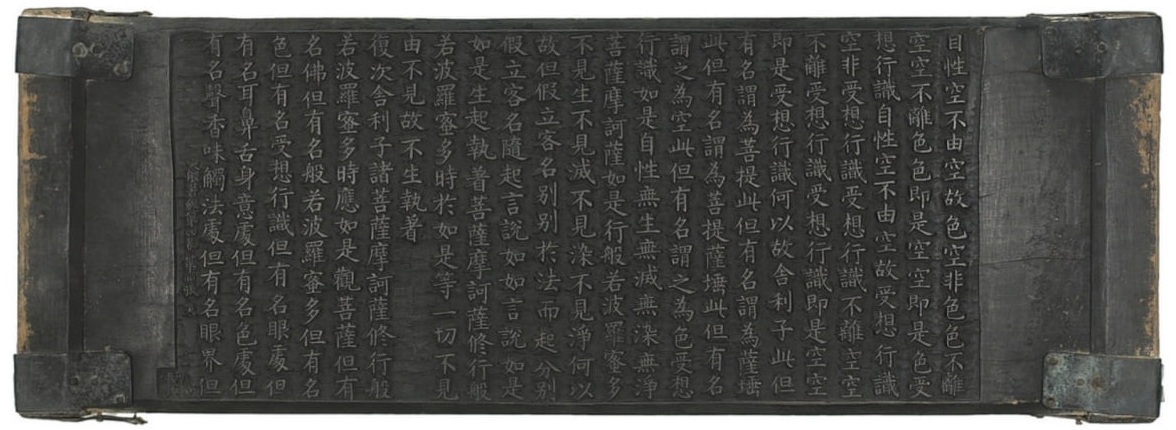 自性空不由空故色空非色色不離
空空不離色色即是空空即是色受
想行識自性空不由空故受想行識
空非受想行識受想行識不離空空
不離受想行識受想行識即是空空
即是受想行識何以故舍利子此但
有名謂為菩提此但有名謂為薩埵
此但有名謂為菩提薩埵此但有名
謂之為空此但有名謂之為色受想
行識如是自性無生無滅無染無淨
菩薩摩訶薩如是行般若波羅蜜多
不見生不見滅不見染不見淨何以
故但假立客名別別於法而起分別
假立客名隨起言說如如言說如是
如是生起執著菩薩摩訶薩修行般
若波羅蜜多時於如是等一切不見
由不見故不生執著
復次舍利子諸菩薩摩訶薩修行般
若波羅蜜多時應如是觀菩薩但有
名佛但有名般若波羅蜜多但有名
色但有名受想行識但有名眼處但
有名耳鼻舌身意處但有名色處但
有名聲香味觸法處但有名眼界但